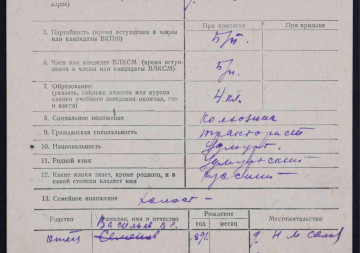 адрес)
При призыве
При призыве
5. Партийность (время вступления в члены
или кандидаты ВКП(б)
б/п.
6. Член или кандидат ВЛКСМ (время всту-
пления в члены или кандидаты ВЛКСМ)
б/п.
7. Образование:
(указать, сколько классов или курсов
какого учебного заведения окончил, где
и когда)
4 кл.
8. Социальное положение
Колхозник
9. Гражданская специальность
тракторист
10. Национальность
Удмурт.
11. Родной язык
Удмуртский
12. Какие языки знает, кроме родного, и в
какой степени владеет ими
Русский
13. Семейное положение
холост
Родство
Фамилия, имя и отчество
Рождение
год
месяц
Местожительство
отец
Васильев
Семенов
д.